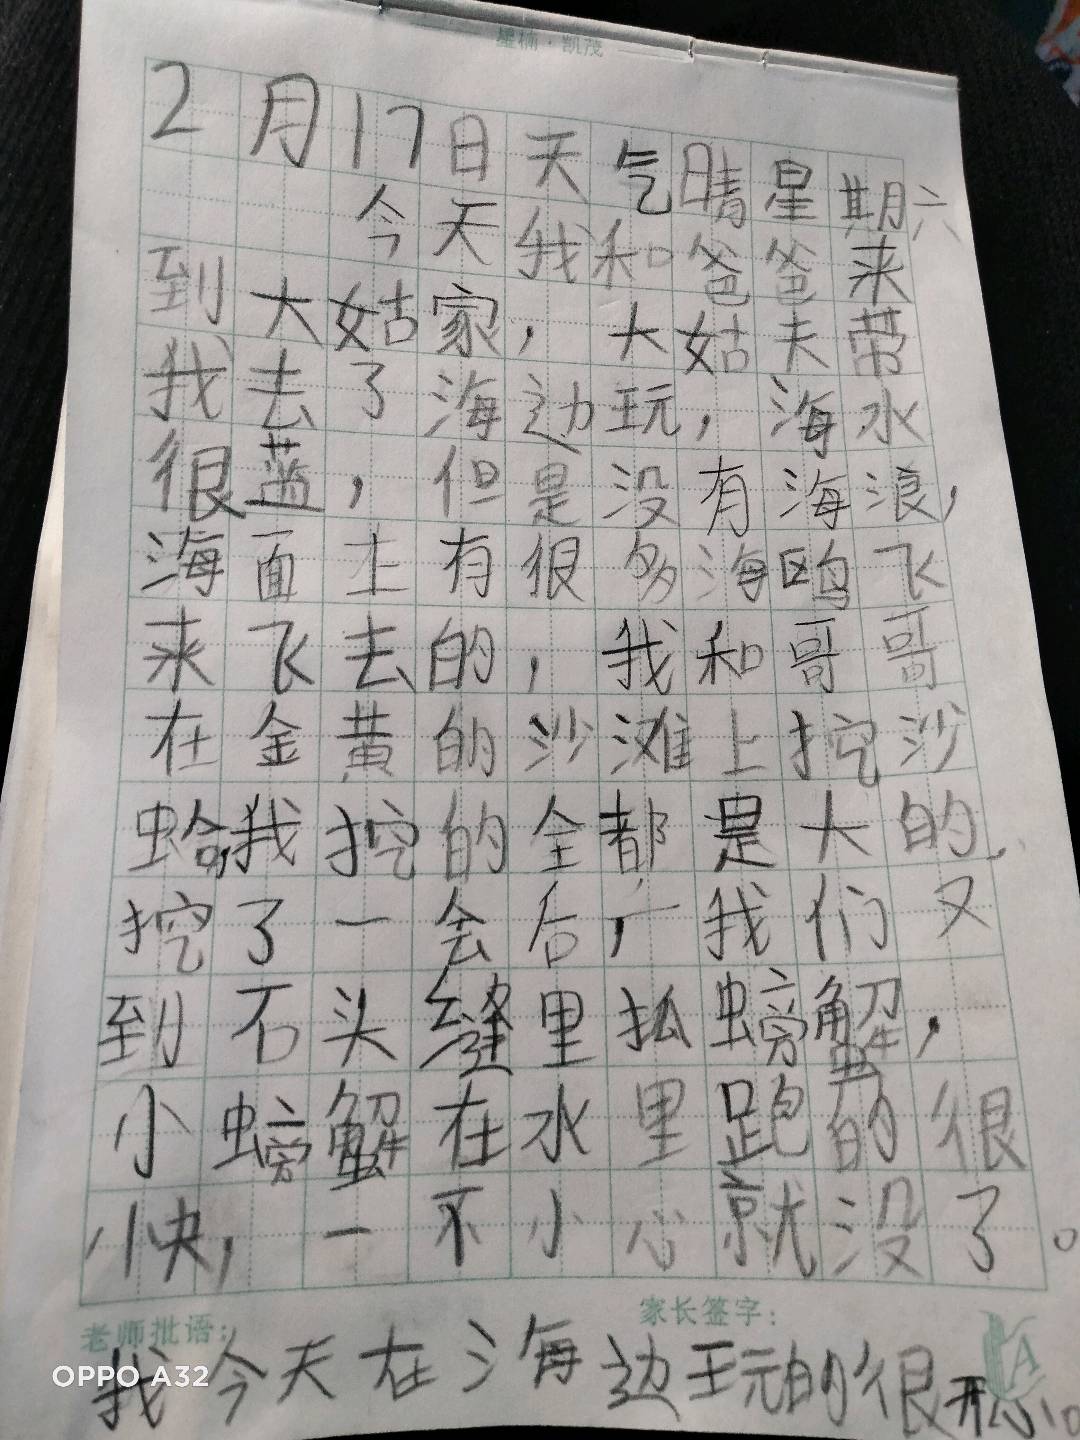 星楠·凯茂
2月17日天气晴星期六
今天我和爸爸来
到大姑家，大姑夫带
我去了海边玩，海水
很蓝，但是没有海浪，
海面上有很多海鸥飞
来飞去的，我和哥哥
在金黄的沙滩上挖沙
蛤，我挖的全都是大的，
挖了一会后，我们又
到石头缝里抓螃蟹，
小螃蟹在水里跑的很
快，一不小心就没了。
老师批语：
家长签字：
我今天在海边玩的很开心。
OPPO A32